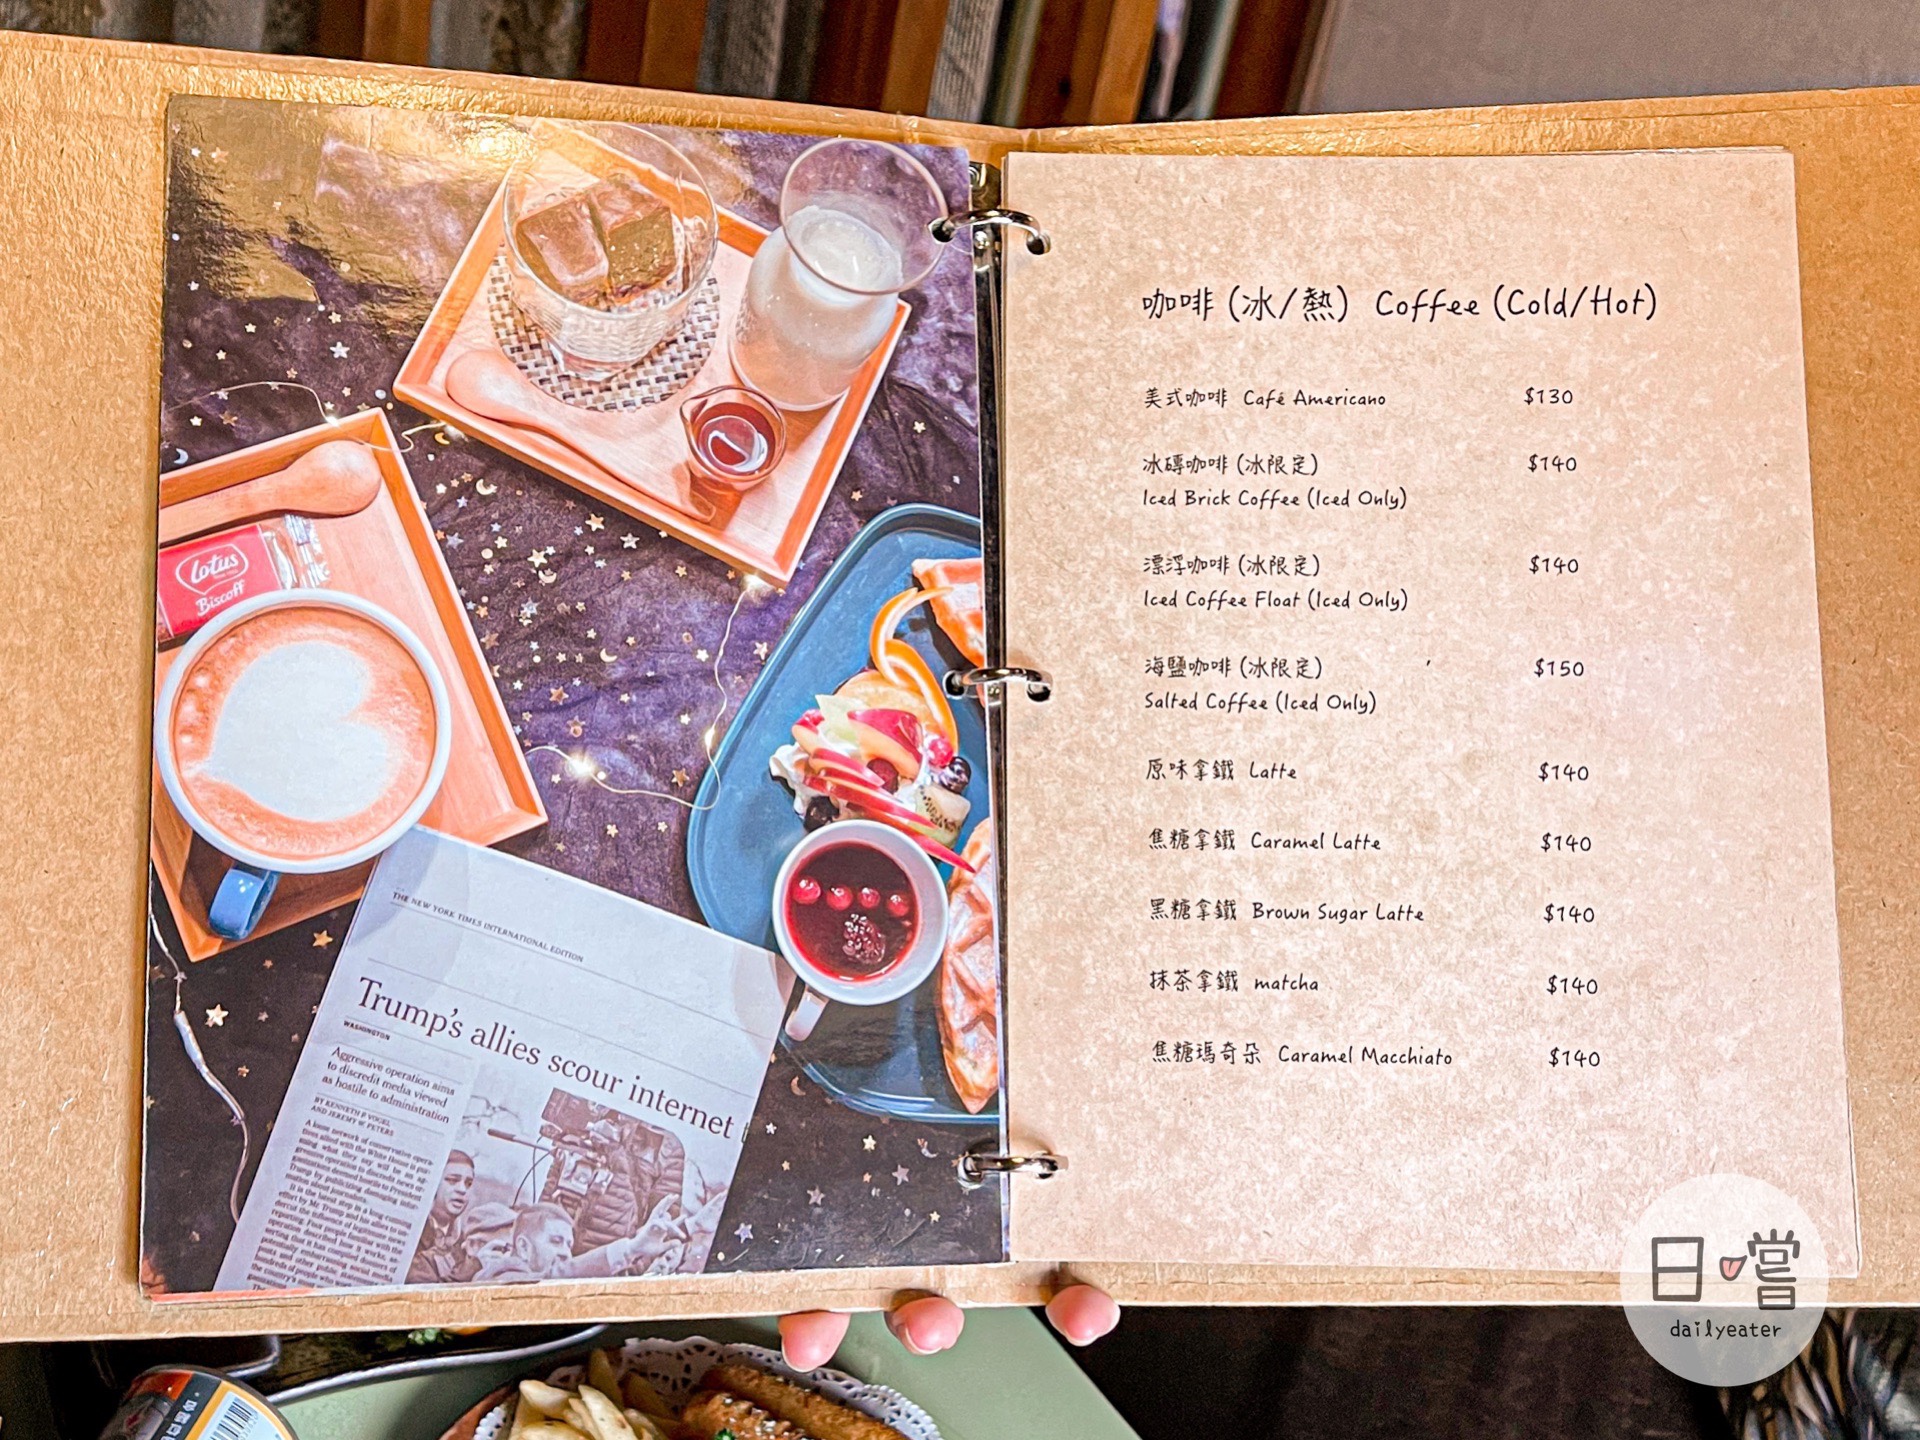 Lotus
Biscoff
THE NEW YORK TIMES INTERNATIONAL EDITION
Trump's allies scour internet
WASHINGTON
Aggressive operation aims
to discredit media viewed
as hostile to administration
BY KENNETH P. VOGEL
AND JEREMY W. PETERS
A loose network of conservative opera-
tives allied with the White House is pur-
咖啡 (冰/熱) Coffee (Cold/Hot)
美式咖啡 Café Americano $130
冰磚咖啡 (冰限定) $140
Iced Brick Coffee (Iced Only)
漂浮咖啡 (冰限定) $140
Iced Coffee Float (Iced Only)
海鹽咖啡 (冰限定) $150
Salted Coffee (Iced Only)
原味拿鐵 Latte $140
焦糖拿鐵 Caramel Latte $140
黑糖拿鐵 Brown Sugar Latte $140
抹茶拿鐵 matcha $140
焦糖瑪奇朵 Caramel Macchiato $140
日嚐
dailyeater